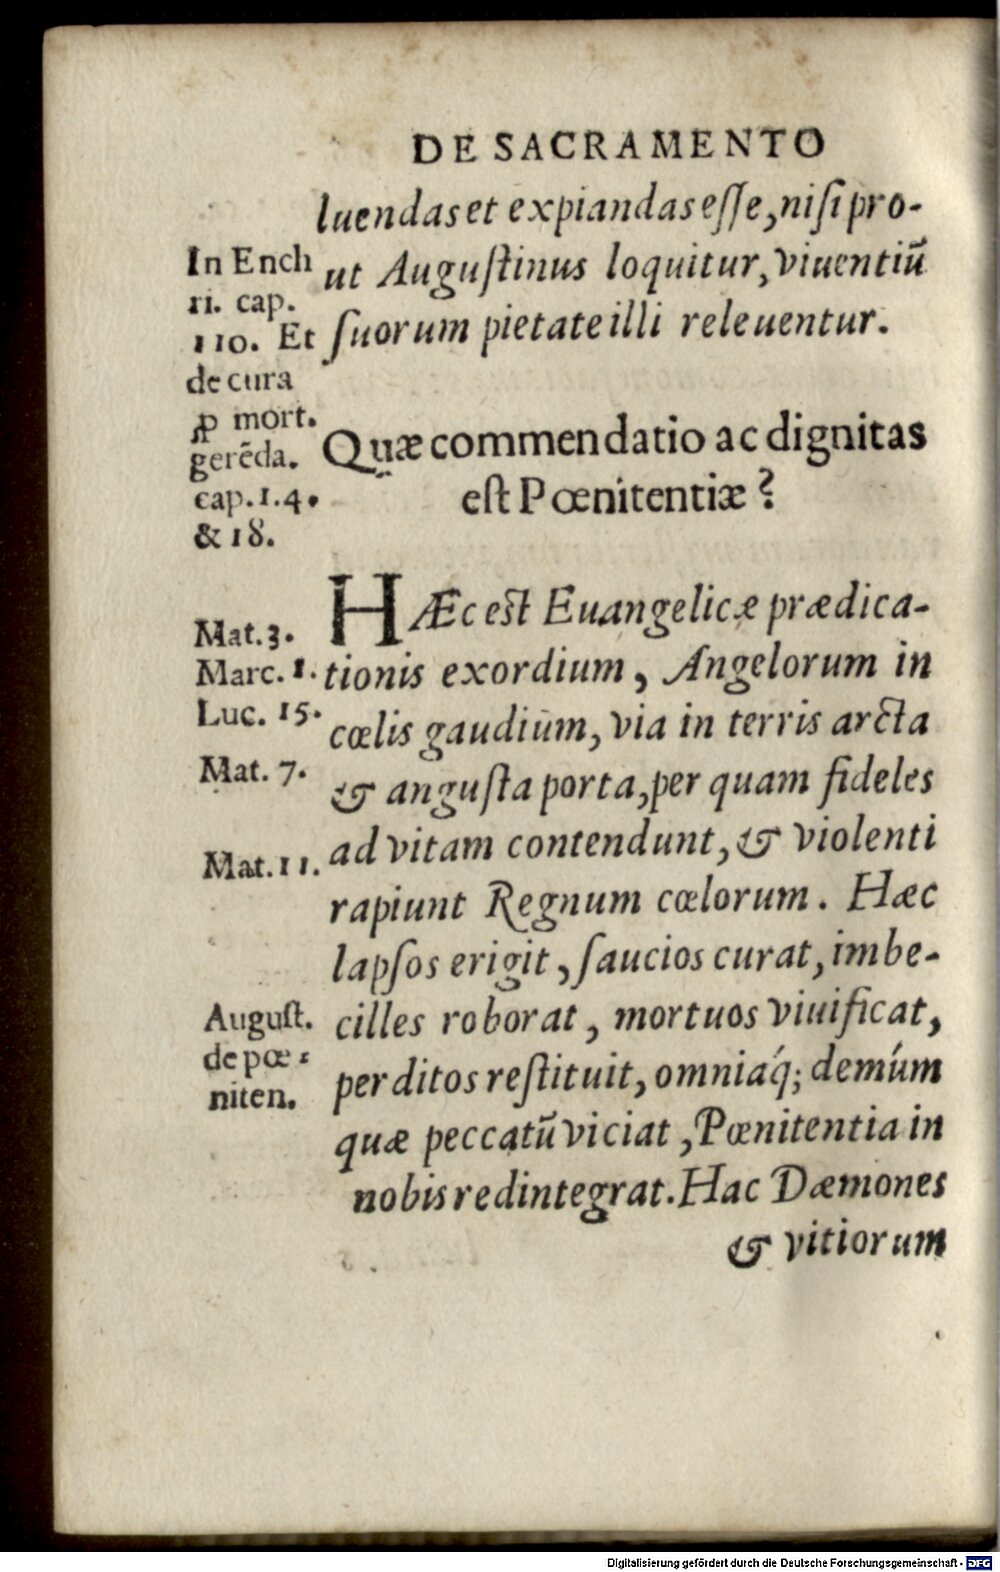 DE SACRAMENTO
luendas et expiandas esse, nisi pro-
ut Augustinus loquitur, viuentiũ
suorum pietate illi releuentur.
In Ench
ri. cap.
110. Et
de cura
ꝓ mort.
gerẽda.
cap. 1. 4.
& 18.
Quæ commendatio ac dignitas
est Pœnitentiæ?
HÆc est Euangelicæ prædica-
tionis exordium, Angelorum in
cœlis gaudium, via in terris arcta
& angusta porta, per quam fideles
ad vitam contendunt, & violenti
rapiunt Regnum cœlorum. Hæc
lapsos erigit, saucios curat, imbe-
cilles roborat, mortuos viuificat,
perditos restituit, omniáq; demúm
quæ peccatũ viciat, Pœnitentia in
nobis redintegrat. Hac Dæmones
& vitiorum
Mat. 3.
Marc. 1.
Luc. 15.
Mat. 7.
Mat. 11.
August.
de pœ-
niten.
Digitalisierung gefördert durch die Deutsche Forschungsgemeinschaft - DFG